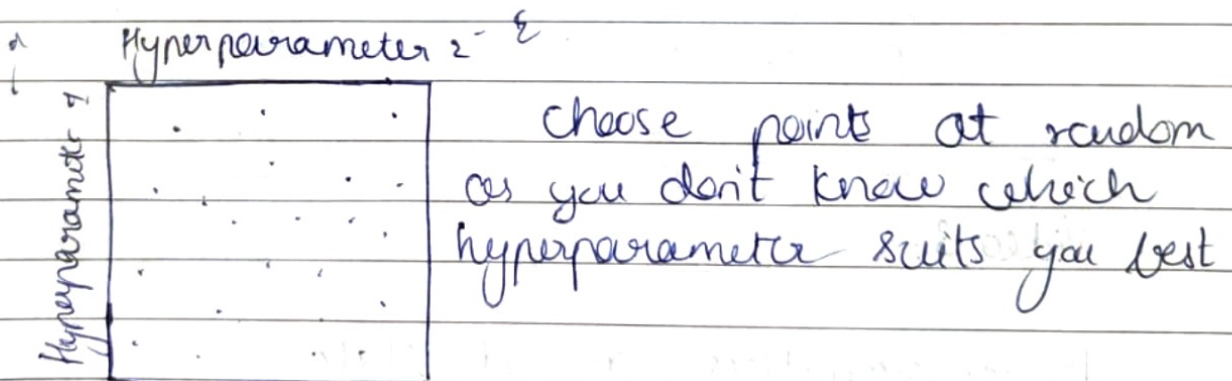 Hyperparameter 2 - ε
Hyperparameter 1
α
choose points at random
as you don't know which
hyperparameter suits you best